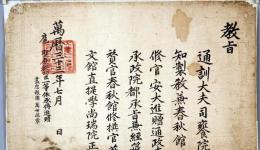 教旨
通訓大夫司饔院
知製教兼春秋館
修官安大進贈通政
承政院都承旨兼經筵
賛官春秋館修撰官
文館直提學尚瑞院正
萬曆三十三年七月 日
一等依承傳追贈